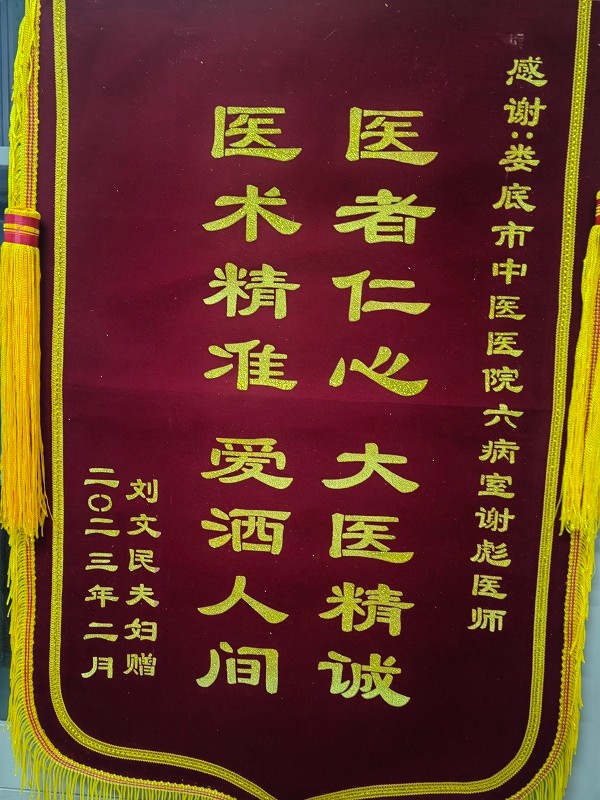 感谢:娄底市中医医院六病室谢彪医师
医者仁心 大医精诚
医术精准 爱洒人间
刘文民夫妇赠
二〇二三年二月